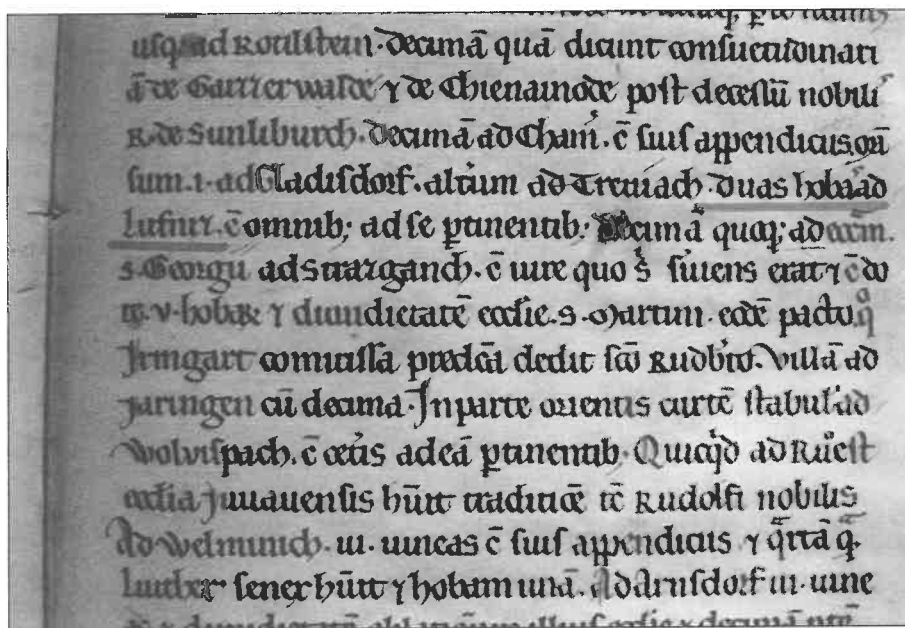 usq; ad Rotilstein. decimā quā dicunt consuetudinari
ā de Gaizzerwalde ⁊ de Chienainode post decessū nobil
R. de Sunliburch. decimā ad Cham. c̄ suis appendiciis
sum. i. ad Gladisdorf. altium ad Treuiach. duas hobas ad
Lufniz. c̄ omnib; ad se ptinentib; Decimā quoq; ad
S. Georgii ad Strazganch. c̄ iure quo s̄ siuens erat ⁊ c̄ do
te. v. hobar ⁊ dimidietatē ecclie. S. Martini. eodē pacto q
Irmgart comitissa predc̄a dedit sc̄o Rudbto. Villā ad
Jaringen cū decima. In parte orientis curtē stabul ad
Wolvispach. c̄ cetis ad eā ptinentib. Quicqd ad Rust
ecclia Juuauensis hūit traditiōe tc̄ Rudolfi nobilis
Ad Welminich. iii. uineas c̄ suis appendiciis ⁊ q̄rtā q̄
Luither senex hūit ⁊ hobam unā. Ad Arnsdorf iii. uine